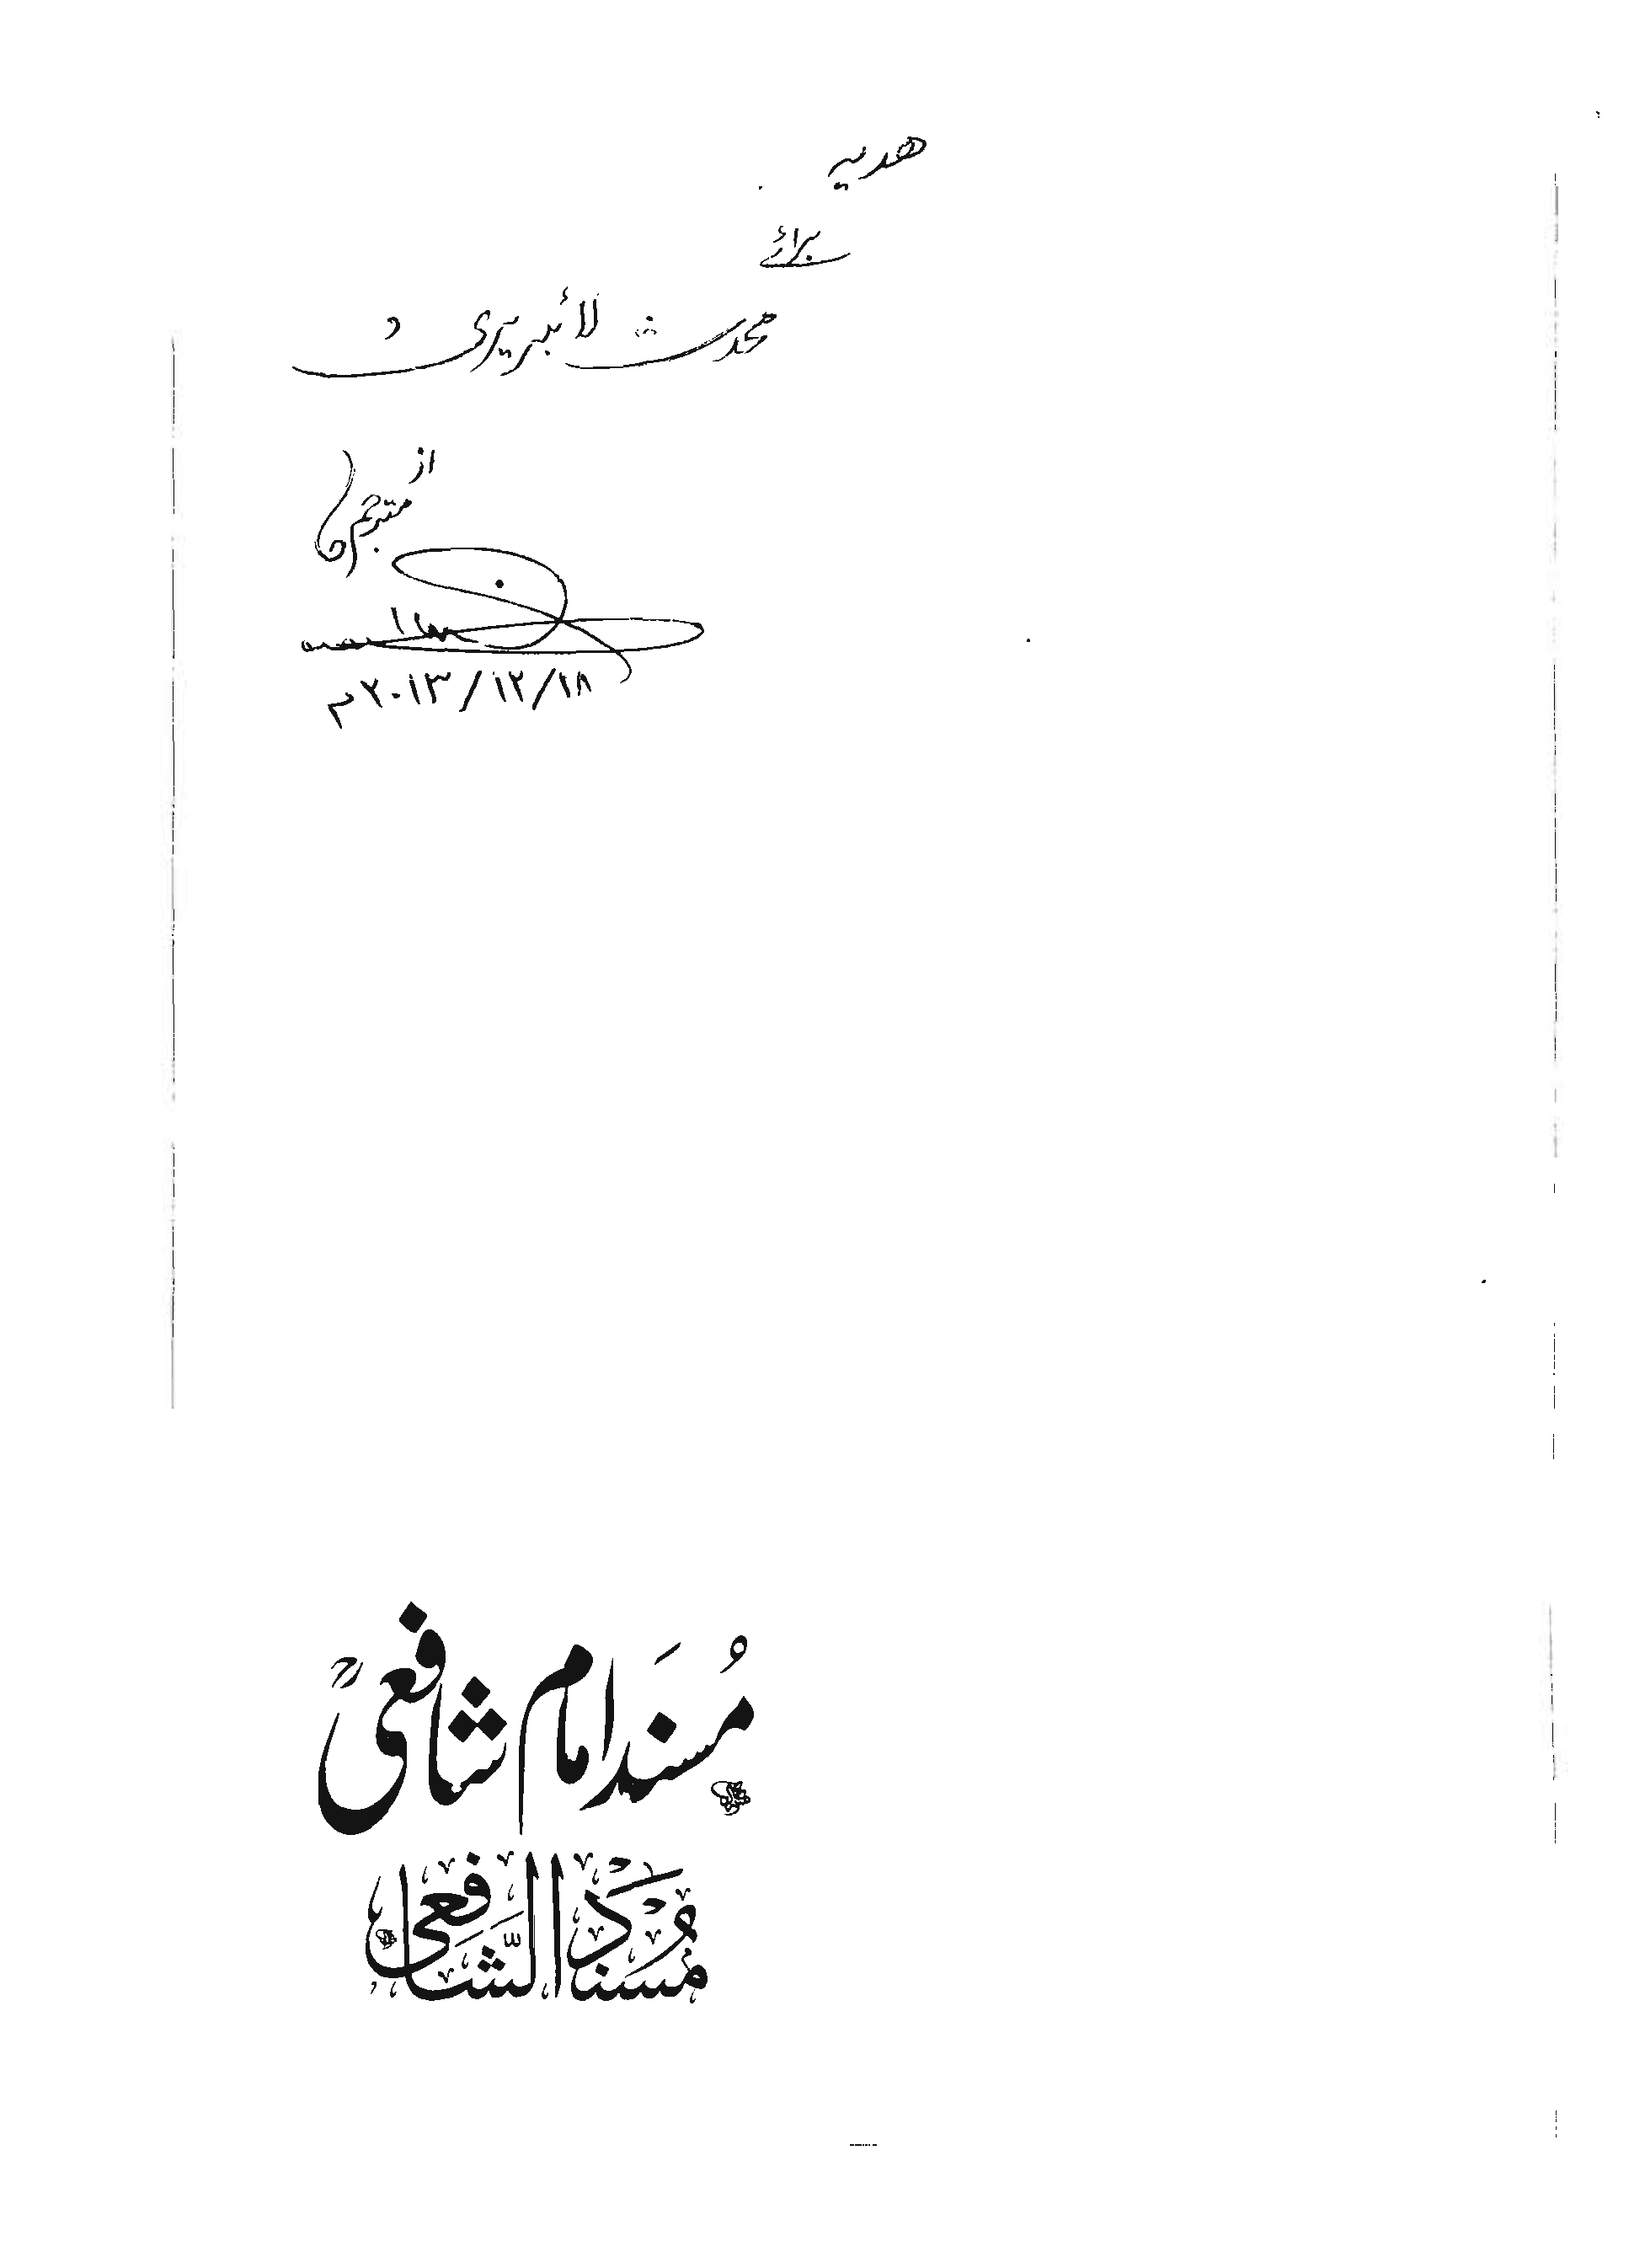 هدیہ
برائے
محدث لائبریری
از
مترجم
۱۸/۱۲/۲۰۱۳م
مُسنَد امام شافعیؒ
مُسْنَدُ الشَّافِعِي